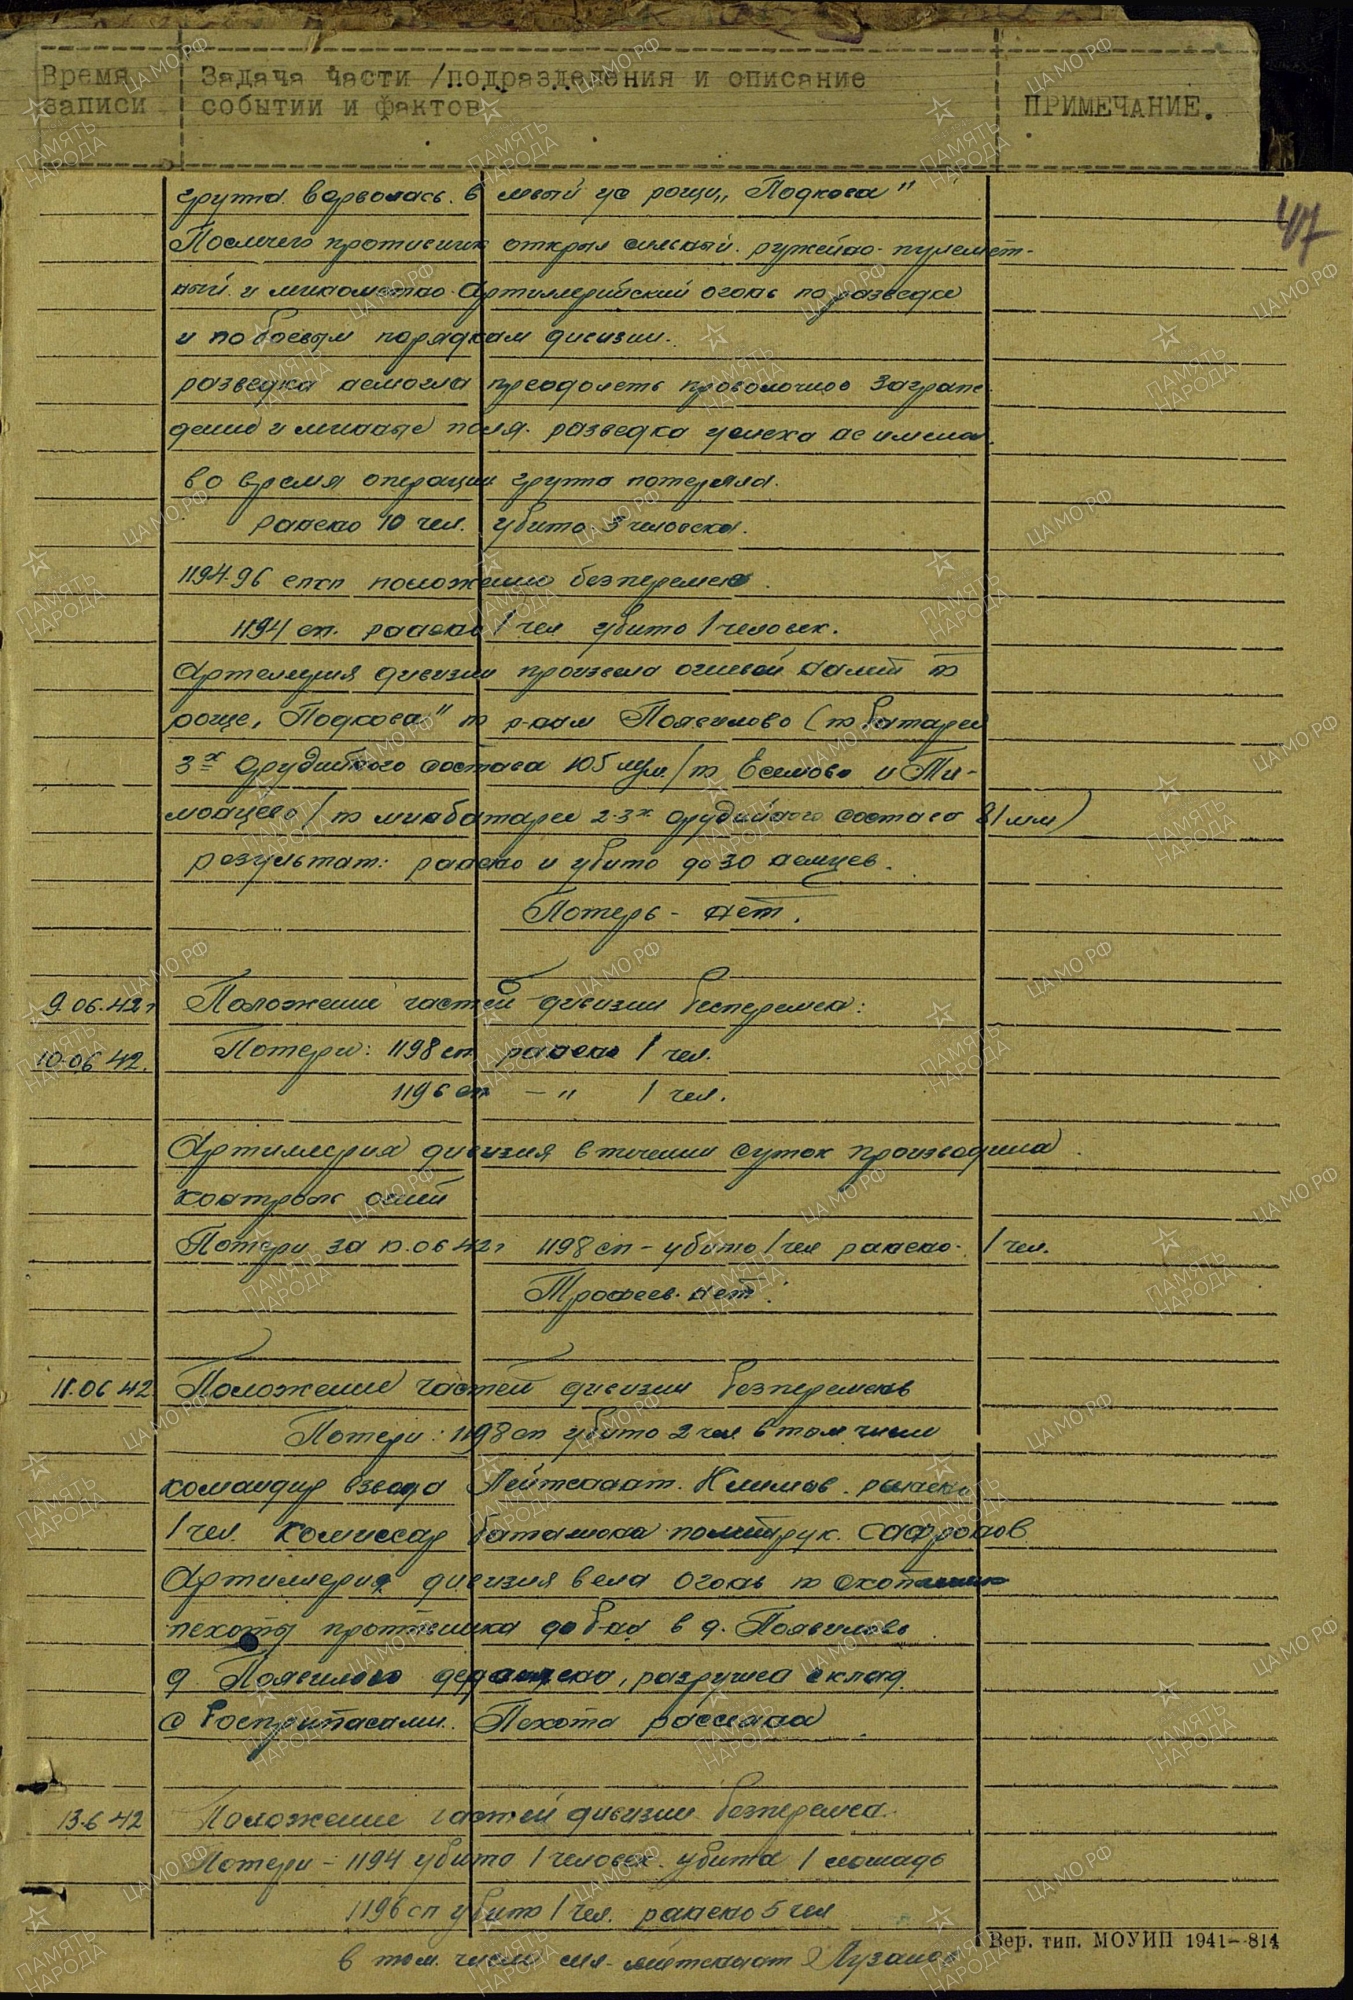 Время записи
Задача части /подразделения и описание
событий и фактов
ПРИМЕЧАНИЕ.
47
группа ворвалась в левый ус рощи „Подкова"
После чего противник открыл сильный ружейно-пулемет-
ный и минометно артиллерийский огонь по разведке
и по боевым порядкам дивизии.
разведка несмогла преодолеть проволочное Заграж-
дение и минные поля. разведка успеха не имела.
во время операции группа потеряла.
ранено 10 чел. убито 3 человека.
1194-96 сп положение безперемен
1194 сп. ранено 1 чел убито 1 человек.
Артелерия дивизии произвела огневой налет по
роще „Подкова" по р-нам Появилово (по батареи
3х Орудийного состава 105 м/м./ по Есемово и Ти-
монцево / по минбатареи 2-3х орудийного состава 81 мм)
результат: ранено и убито до 30 немцев.
Потерь - нет.
9.06.42г Положение частей дивизии бесперемен:
10.06 42. Потери: 1198 сп ранено 1 чел.
1196 сп -"- 1 чел.
Артиллерия дивизия в течении суток производила
контроль огней
Потери за 10.06 42г 1198 сп - убито 1 чел ранено - 1 чел.
Трофеев нет.
11.06 42 Положение частей дивизии безперемен
Потери: 1198 сп убито 2 чел в том числе
командир взвода Лейтенант. Климов. ранено
1 чел комиссар батальона политрук. САФронов
Артиллерия дивизия вела огонь по скоплению
пехоты противника до б-на в д. Появилово
д. Появилово разрушен склад
с боеприпасами. Пехота рассеяна
13.6 42 Положение частей дивизии безперемен.
Потери - 1194 убито 1 человек. убита 1 лошадь
1196 сп убито 1 чел. ранено 5 чел
Вер. тип. МОУИП 1941-814
в том числе мл. лейтенант Лузанов
ПАМЯТЬ НАРОДА
ЦАМО.РФ